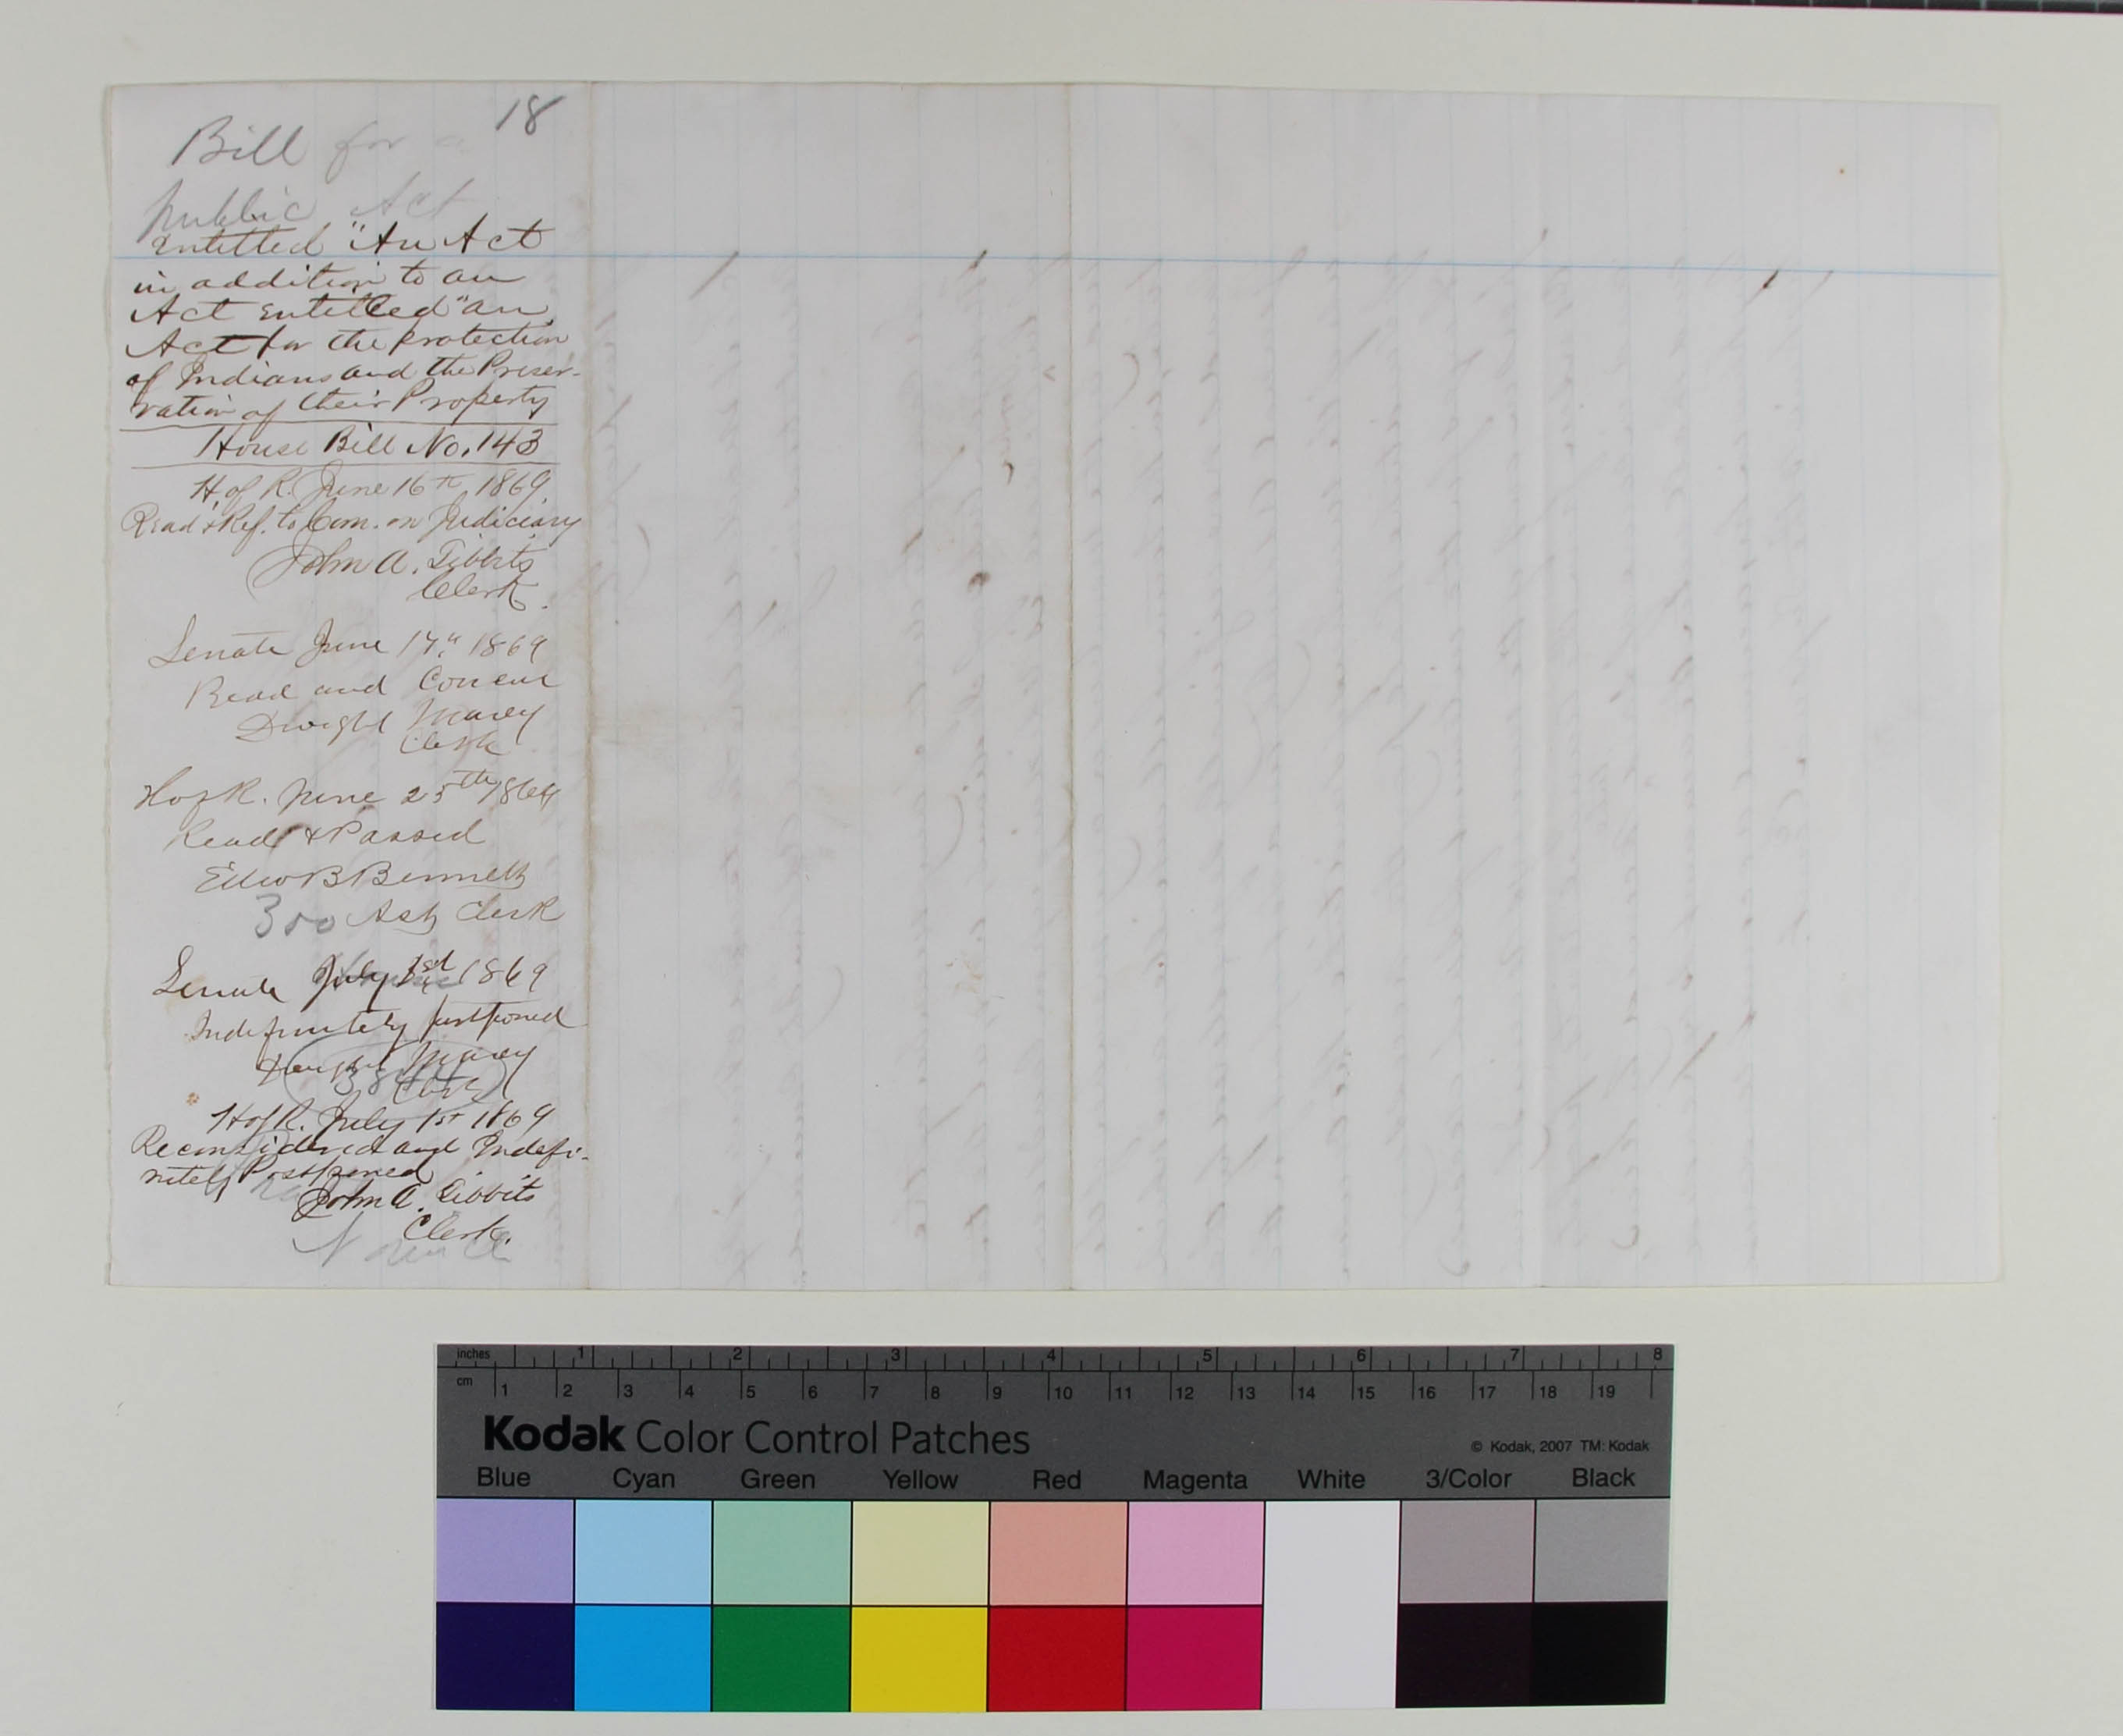 18
Bill for a
public Act
Entitled "An Act
in addition to an
Act entitled "an
Act for the protection
of Indians and the Preser-
vation of their Property
House Bill No. 143
H. of R. June 16th 1869.
Read & Ref. to Com. on Judiciary
John A. Tibbits
Clerk.
Senate June 17th 1869
Read and Concur
Dwight Marcy
Clerk
H of R. June 25th 1869
Read & Passed
Edw B Bennett
300 Ast Clerk
Senate July 1st 1869
Indefinitely postponed
Dwight Marcy
Clerk
H of R. July 1st 1869
Reconsidered and Indefi-
nitely Postponed
John A. Tibbits
Clerk.
inches 1 2 3 4 5 6 7 8
cm 1 2 3 4 5 6 7 8 9 10 11 12 13 14 15 16 17 18 19
Kodak Color Control Patches
© Kodak, 2007 TM: Kodak
Blue Cyan Green Yellow Red Magenta White 3/Color Black